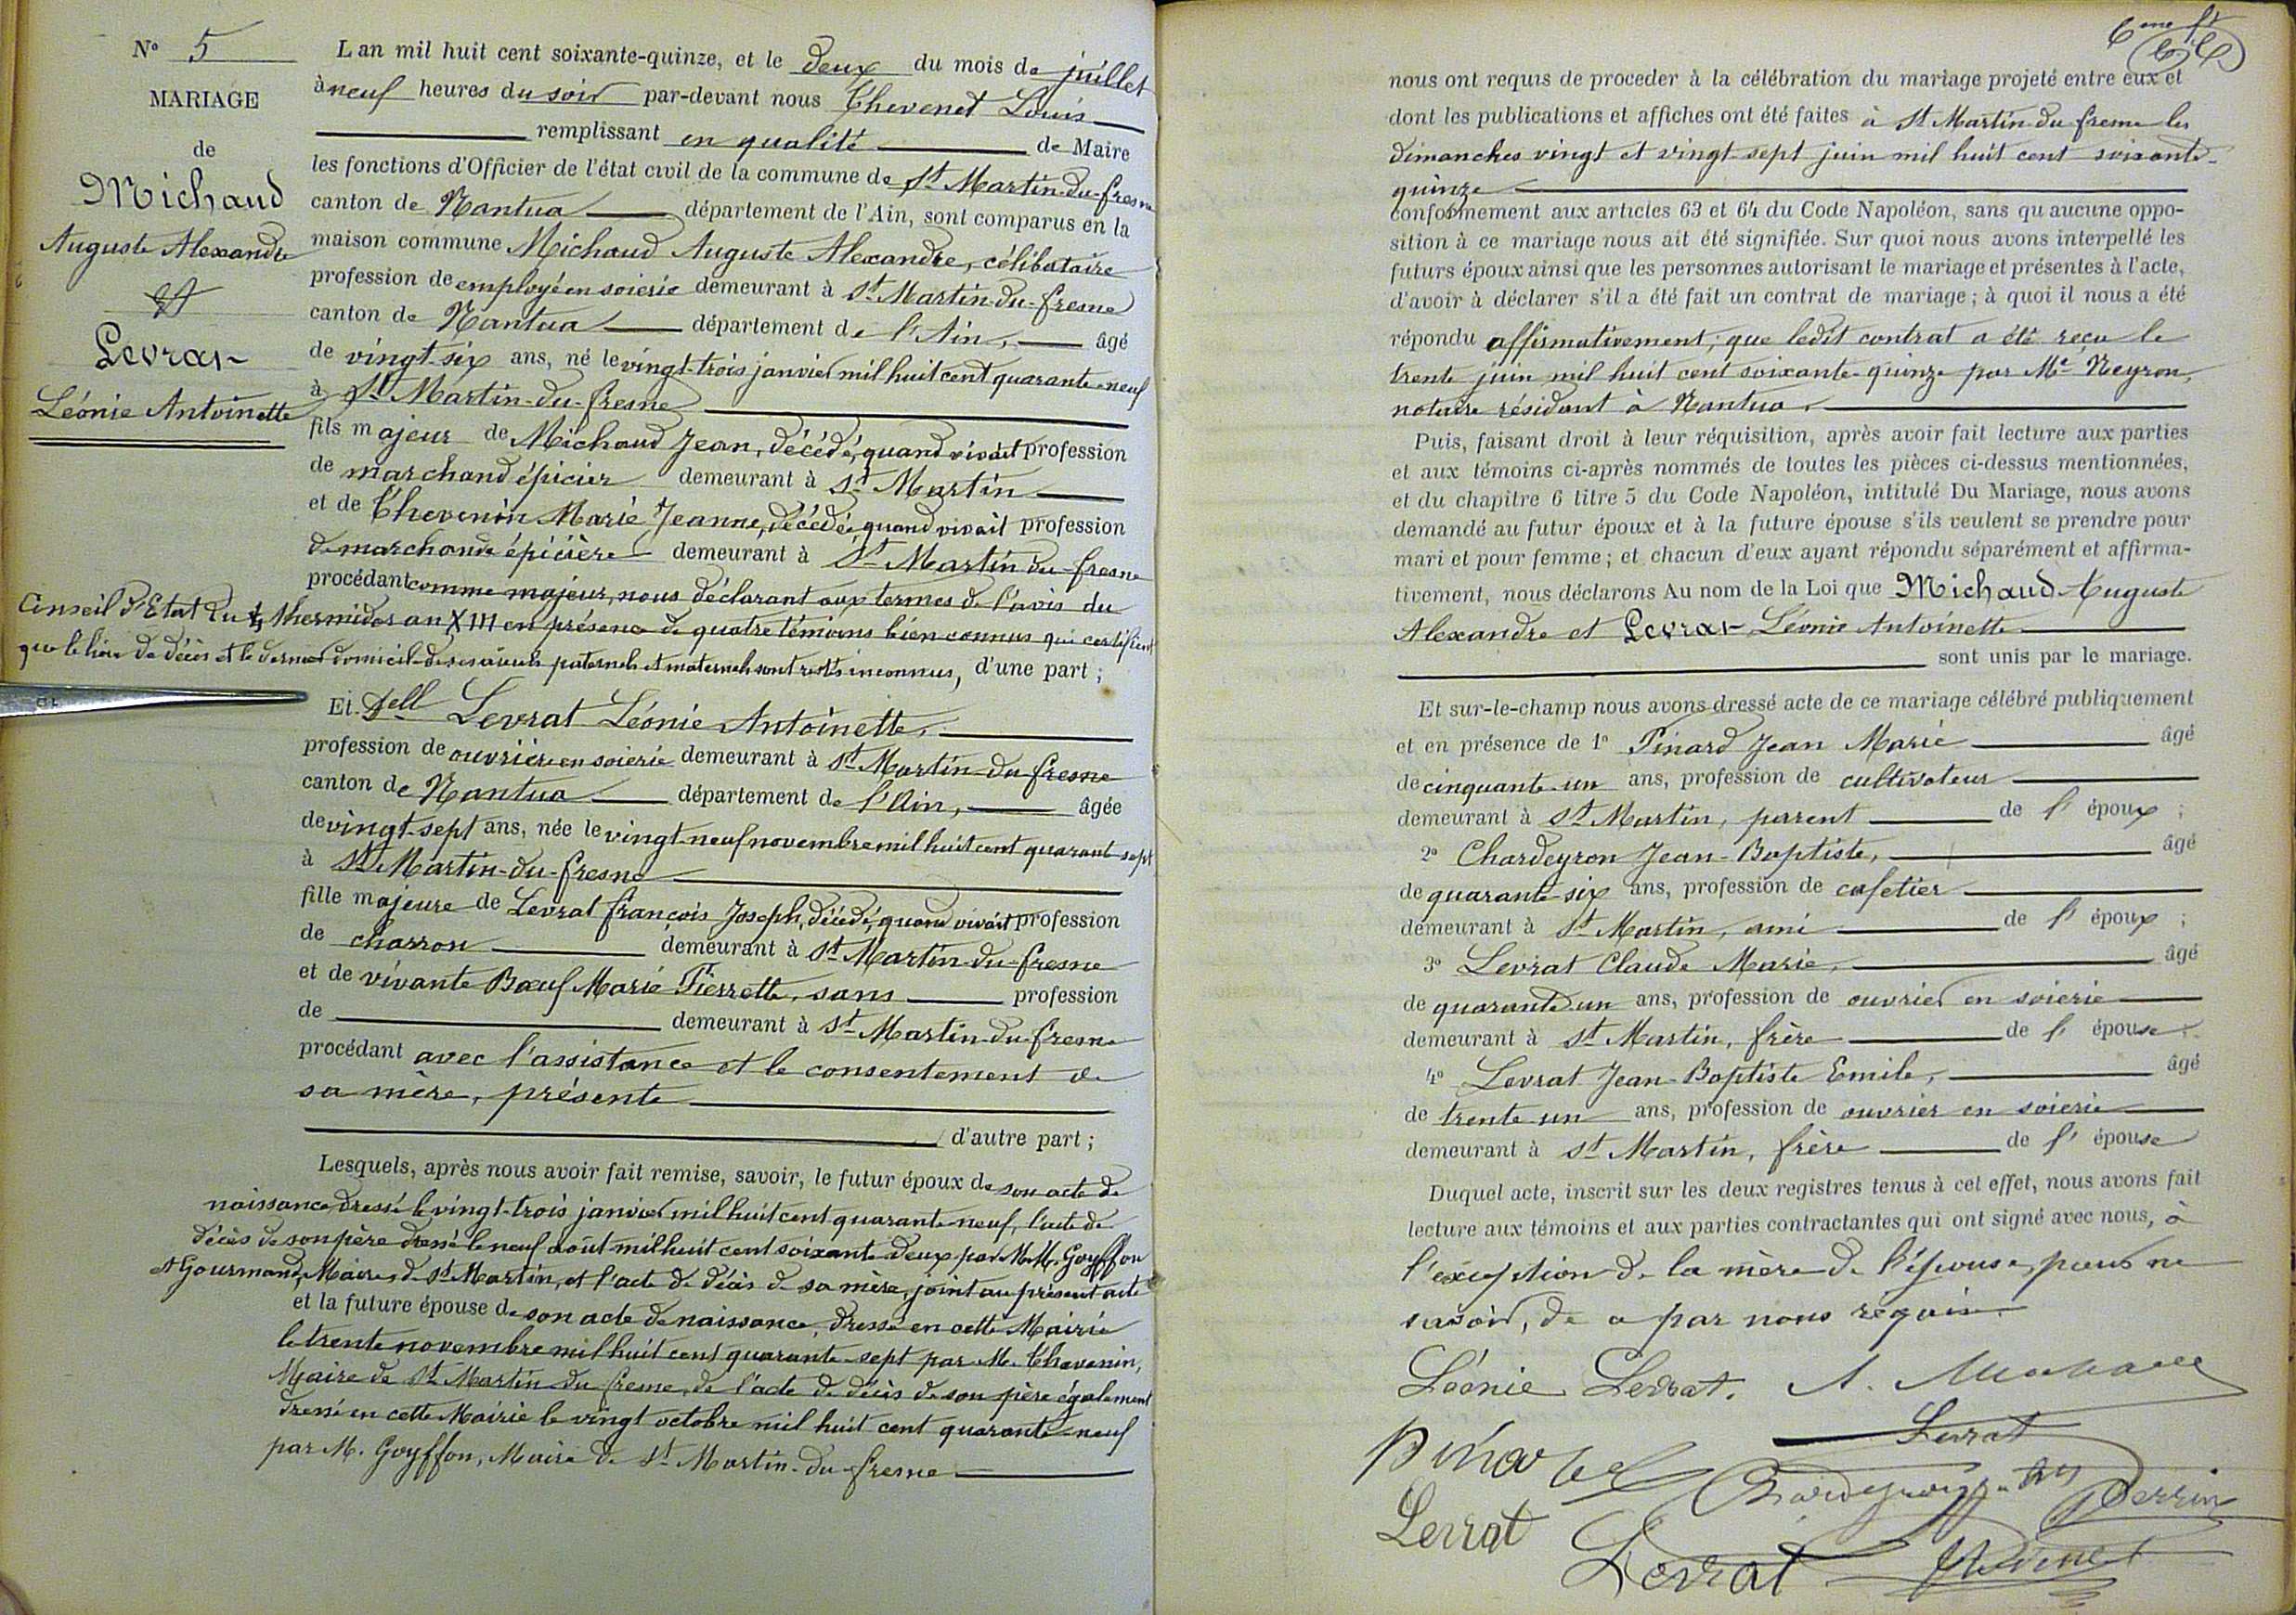 N° 5
MARIAGE
de
Michaud
Auguste Alexandre
Et
Levrat
Léonie Antoinette
L an mil huit cent soixante-quinze, et le deux du mois de juillet
à neuf heures du soir par-devant nous Thevenet Louis
remplissant en qualité de Maire
les fonctions d'Officier de l'état civil de la commune de St Martin-du-fresne
canton de Nantua département de l'Ain, sont comparus en la
maison commune Michaud Auguste Alexandre, célibataire
profession de employé en soierie demeurant à St Martin-du-fresne
canton de Nantua département de l'Ain, âgé
de vingt-six ans, né le vingt-trois janvier mil huit cent quarante-neuf
à St Martin-du-fresne
fils majeur de Michaud Jean, décédé, quand vivait profession
de marchand épicier demeurant à St Martin
et de Thevenin Marie Jeanne, décédée, quand vivait profession
de marchande épicière demeurant à St Martin du fresne
procédant comme majeur, nous déclarant aux termes de l'avis du
Conseil d'Etat du 4 thermidor an XIII en présence de quatre témoins bien connus qui certifient
que le lieu de décès et le dernier domicile de ses aïeuls paternels et maternels sont inconnus, d'une part ;
Et Dell Levrat Léonie Antoinette,
profession de ouvrière en soierie demeurant à St Martin-du-fresne
canton de Nantua département de l'Ain, âgée
de vingt-sept ans, née le vingt-neuf novembre mil huit cent quarant-sept
à St Martin-du-fresne
fille majeure de Levrat françois Joseph, décédé, quand vivait profession
de charron demeurant à St Martin-du-fresne
et de vivante Bœuf Marie Pierrette, sans profession
de demeurant à St Martin du fresne
procédant avec l'assistance et le consentement de
sa mère, présente
d'autre part ;
Lesquels, après nous avoir fait remise, savoir, le futur époux de son acte de
naissance dressé le vingt-trois janvier mil huit cent quarante-neuf, l'acte de
décès de son père dressé le neuf août mil huit cent soixante deux par M.M. Goyffon
et Gourmand, Maires de St Martin, et l'acte de décès de sa mère, joint au présent acte
et la future épouse de son acte de naissance, dressé en cette Mairie
le trente novembre mil huit cent quarante-sept par M. Thevenin,
Maire de St Martin du fresne, de l'acte de décès de son père également
dressé en cette Mairie le vingt octobre mil huit cent quarante-neuf
par M. Goyffon, Maire de St Martin-du-fresne
6me ft
nous ont requis de proceder à la célébration du mariage projeté entre eux et
dont les publications et affiches ont été faites à St Martin du fresne les
dimanches vingt et vingt sept juin mil huit cent soixante-
quinze
conformement aux articles 63 et 64 du Code Napoléon, sans qu aucune oppo-
sition à ce mariage nous ait été signifiée. Sur quoi nous avons interpellé les
futurs époux ainsi que les personnes autorisant le mariage et présentes à l'acte,
d'avoir à déclarer s'il a été fait un contrat de mariage ; à quoi il nous a été
répondu affirmativement ; que ledit contrat a été reçu le
trente juin mil huit cent soixante-quinze par Me Neyron,
notaire résidant à Nantua.
Puis, faisant droit à leur réquisition, après avoir fait lecture aux parties
et aux témoins ci-après nommés de toutes les pièces ci-dessus mentionnées,
et du chapitre 6 titre 5 du Code Napoléon, intitulé Du Mariage, nous avons
demandé au futur époux et à la future épouse s'ils veulent se prendre pour
mari et pour femme ; et chacun d'eux ayant répondu séparément et affirma-
tivement, nous déclarons Au nom de la Loi que Michaud Auguste
Alexandre et Levrat Léonie Antoinette
sont unis par le mariage.
Et sur-le-champ nous avons dressé acte de ce mariage célébré publiquement
et en présence de 1° Pinard Jean Marie âgé
de cinquante-un ans, profession de cultivateur
demeurant à St Martin, parent de l'époux ;
2° Chardeyron Jean-Baptiste, âgé
de quarante-six ans, profession de cafetier
demeurant à St Martin, ami de l'époux ;
3° Levrat Claude Marie, âgé
de quarante un ans, profession de ouvrier en soierie
demeurant à St Martin, frère de l'épouse.
4° Levrat Jean-Baptiste Emile, âgé
de trente-un ans, profession de ouvrier en soierie
demeurant à St Martin, frère de l'épouse
Duquel acte, inscrit sur les deux registres tenus à cet effet, nous avons fait
lecture aux témoins et aux parties contractantes qui ont signé avec nous, à
l'exception de la mère de l'épouse, pour ne
savoir, de ce par nous requise.
Léonie Levrat. A. Michaud
Levrat
Pinard Chardeyron Perrin
Levrat Levrat Thevenet